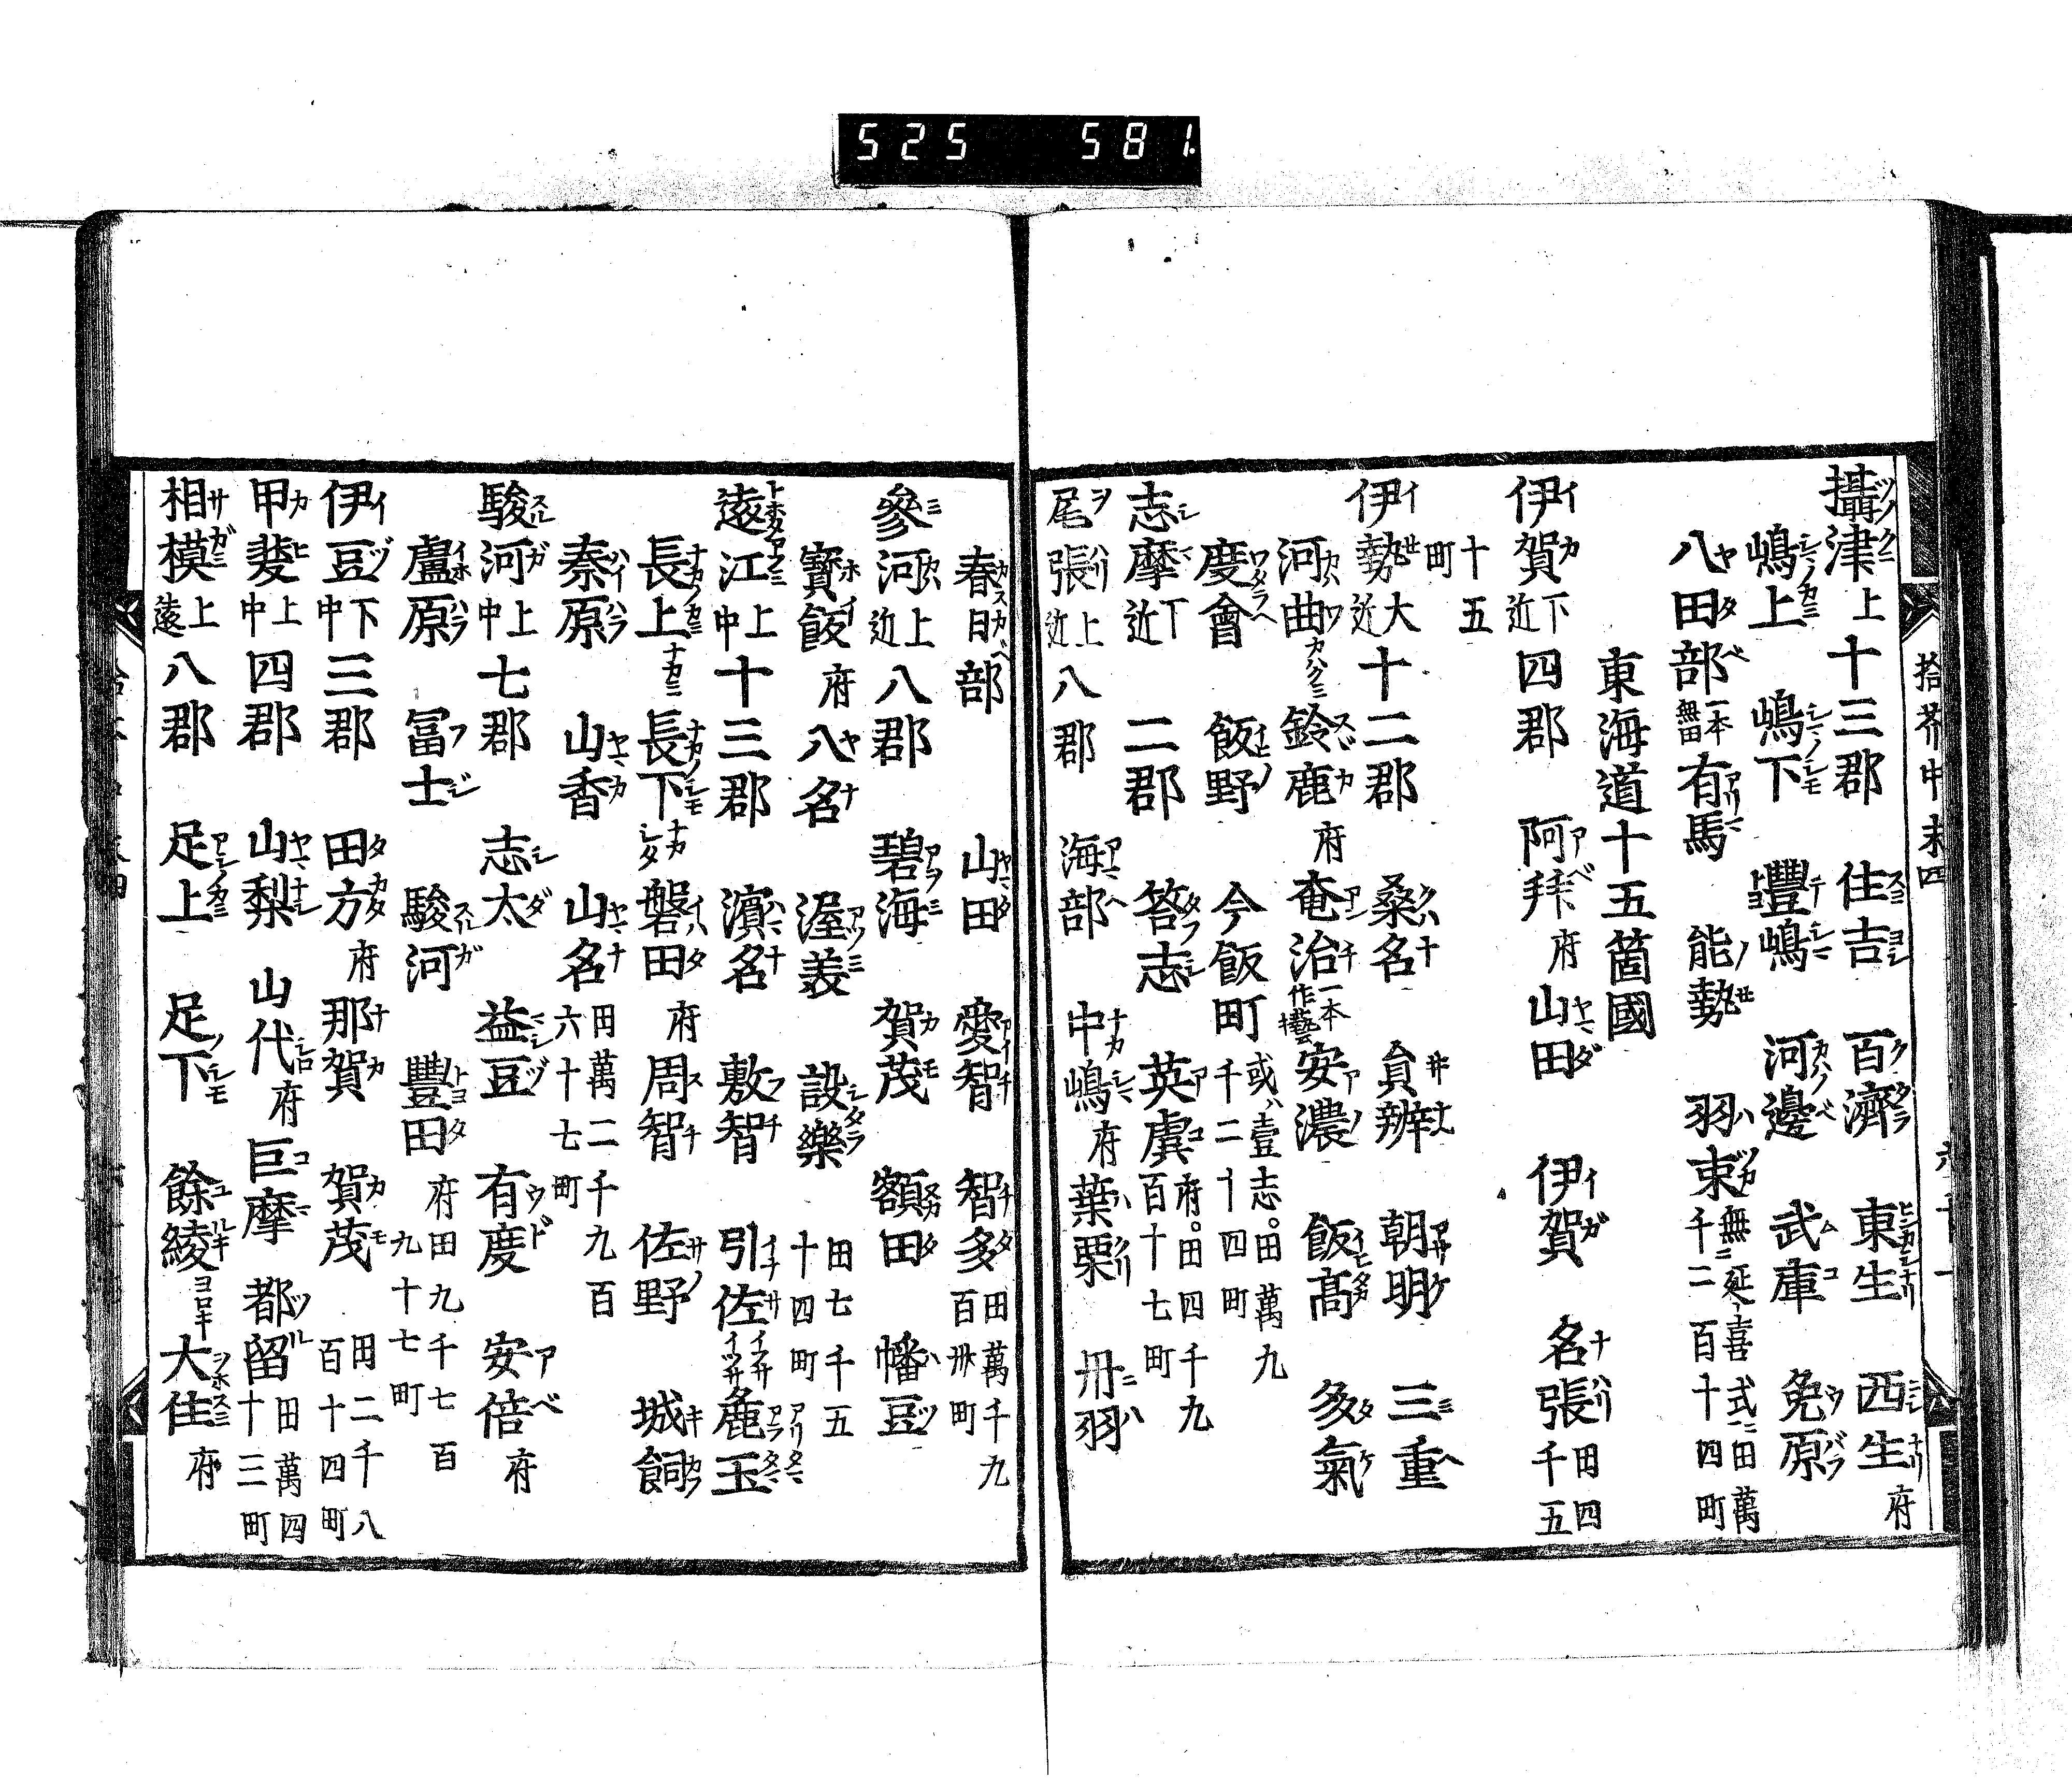 525 581.
拾芥中末四
攝津上十三郡 住吉 百濟 東生 西生府
嶋上 嶋下 豐嶋 河邊 武庫 兔原
八田部一本無田 有馬 能勢 羽束無延喜式田萬千二百十四町
東海道十五箇國
伊賀下近四郡 阿拜府 山田 伊賀 名張田四千五
十五町
伊勢大近十二郡 桑名 員辨 朝明 三重
河曲カハクミ 鈴鹿府 奄治一本作藝 安濃 飯髙 多氣
度會 飯野 今飯町或ハ壹志。田萬九千二十四町
志摩下近 二郡 答志 英虞府。田四千九百十七町
尾張上近八郡 海部 中嶋府 葉栗 丹羽
春日部 山田 愛智 智多田萬千九百卅町
參河上近八郡 碧海 賀茂 額田 幡豆
寳飯府 八名 渥美 設樂田七千五十四町
遠江上中十三郡 濱名 敷智 引佐イフサイツサ 麁玉
長上ナカミ 長下ナカシタ 磐田府 周智 佐野 城飼
秦原 山香 山名田萬二千九百六十七町
駿河上中七郡 志太 益豆 有度 安倍府
盧原 冨士 駿河 豐田府田九千七百九十七町
伊豆下中三郡 田方府 那賀 賀茂田二千八百十四町
甲斐上中四郡 山梨 山代府 巨摩 都留田萬四十三町
相模上遠八郡 足上 足下 餘綾ヨロキ 大住府